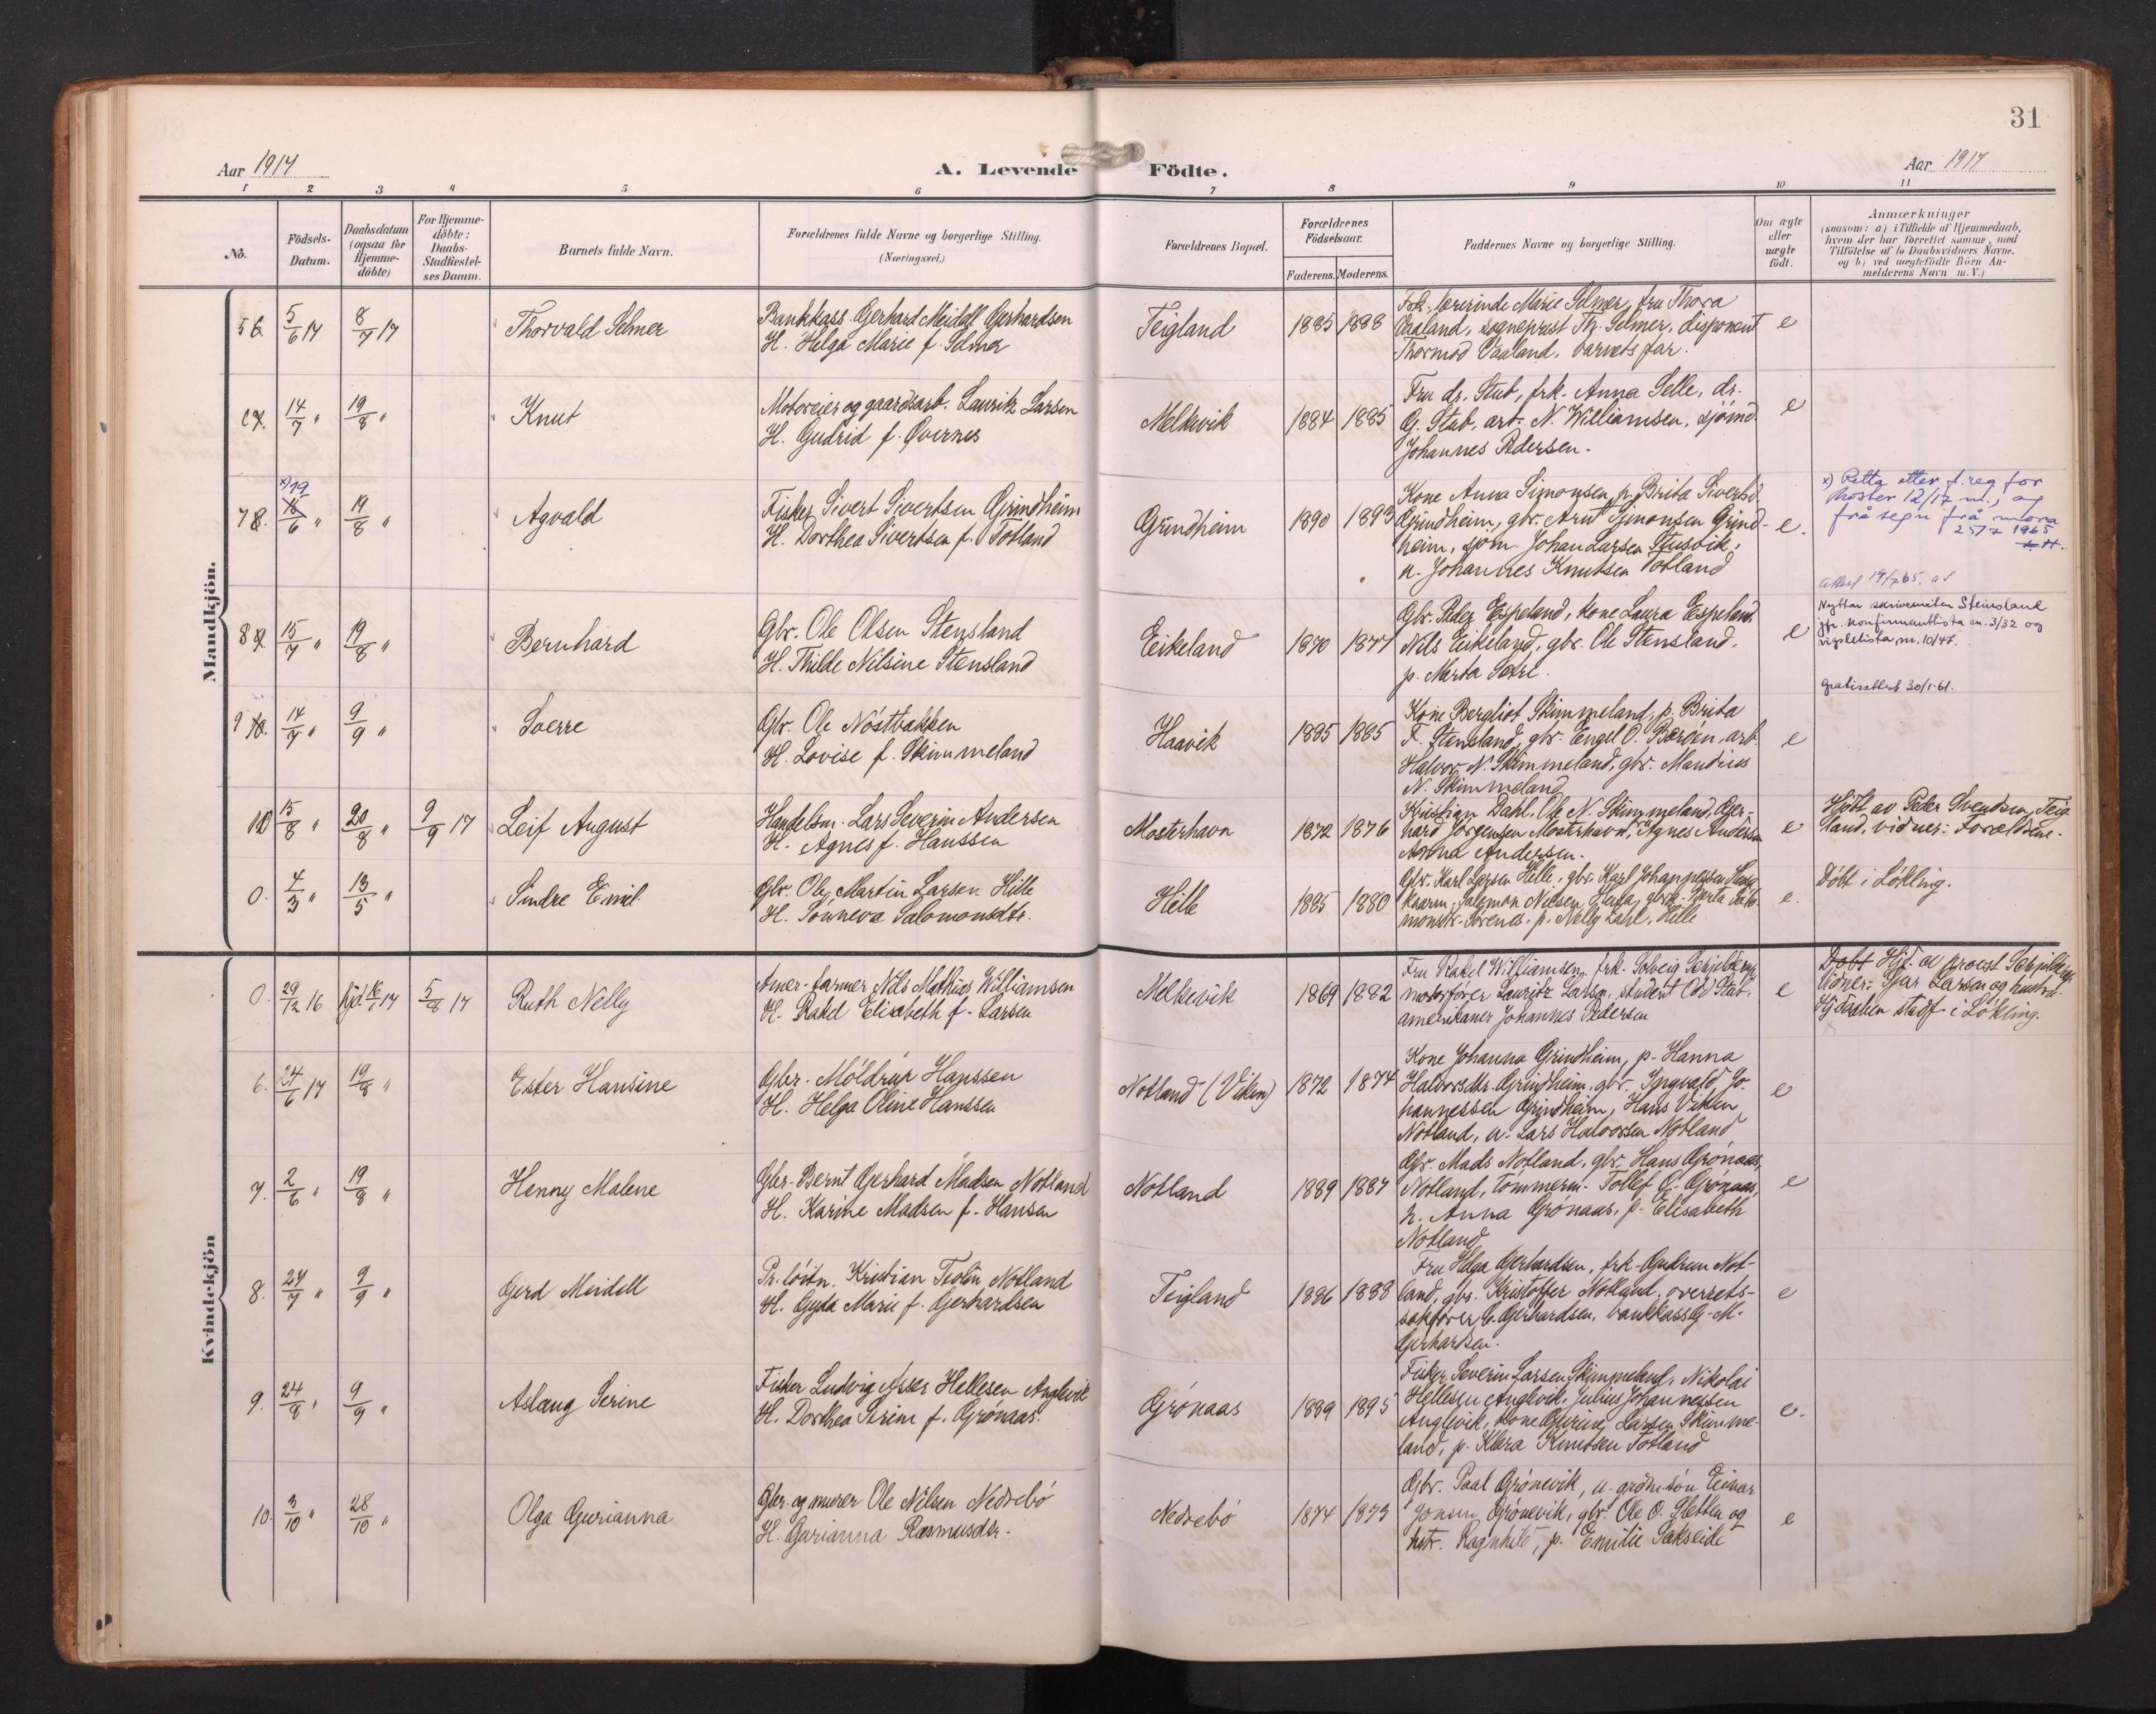 31
Aar 1917
A. Levende Födte.
Aar 1917
1 2 3 4 5 6 7 8 9 10 11
No.
Födsels-
Datum.
Daabsdatum
(ogsaa for
Hjemme-
döbte)
For Hjemme-
döbte:
Daabs-
Stadfæstel-
ses Datum.
Barnets fulde Navn.
Forældrenes fulde Navne og borgerlige Stilling.
(Næringsvei.)
Forældrenes Bopæl.
Forældrenes
Födselsaar.
Faderens. Moderens.
Faddernes Navne og borgerlige Stilling.
Om ægte
eller
uægte
födt.
Anmærkninger
(saasom: a) i Tilfælde af Hjemmedaab,
hvem der har forrettet samme, med
Tilföielse af to Daabsvidners Navne,
og b) ved uægtefödte Börn An-
melderens Navn m. V.)
Mandkjön.
5 6. 5/6 17 8/7 17 Thorvald Selmer
Bankkass. Gerhard Meidell Gerhardsen
H. Helga Marie f. Selmer
Teigland 1885 1888
Frk. lærerinde Marie Selmer, fru Thora
Vaaland, sogneprest Th. Selmer, disponent
Thormod Vaaland, barnets far.
e
14/7 " 19/8 " Knut
Motoreier og gaardsarb. Lauritz Larsen
H. Gudrid f. Qvernes
Melkevik 1884 1885
Fru dr. Stub, frk. Anna Selle, dr.
G. Stub, arb. N. Williamsen, sjömd.
Johannes Pedersen.
e
7 8. x) 19 18/6 " 19/8 " Agvald
Fisker Sivert Sivertsen Grindheim
H. Dorthea Sivertsen f. Totland
Grindheim 1890 1893
Kone Anna Simonsen, p. Brita Sivertsd.
Grindheim, gbr. Arnt Simonsen Grind-
heim, sjöm. Johan Larsen Stusvik,
u. Johannes Knutsen Totland
e.
x) Retta etter f.reg for
Moster 12/17 m., og
frå segn frå mora
25/7 1965
8 9. 15/7 " 19/8 " Bernhard
Gbr. Ole Olsen Stensland
H. Thilde Nilsine Stensland
Eikeland 1870 1877
Gbr. Peder Espeland, kone Laura Espeland,
Nils Eikeland, gbr. Ole Stensland,
p. Marta Sætre.
e
Attest 19/7 65.
Nyttar skrivemåten Steinsland
jfr. konfirmantlista nr. 3/32 og
vigslelista nr. 10/47.
Gratisattest 30/1-61.
9 10. 14/7 " 9/9 " Sverre
Gbr. Ole Nöstbakken
H. Lovise f. Skimmeland
Haavik 1885 1885
Kone Bergliot Skimmeland, p. Brita
F. Stensland, gbr. Engel O. Beröen, arb.
Halvor N. Skimmeland, gbr. Mandius
N. Skimmeland
e
10 15/8 " 20/8 " 9/9 17 Leif August
Handelsm. Lars Severin Andersen
H. Agnes f. Hanssen
Mosterhavn 1872 1876
Kristian Dahl, Ole N. Skimmeland, Ger-
hard Jörgensen Mosterhavn, Agnes Andersen
Anna Andersen.
e
Hjdöbt av Peder Svendsen, Teig-
land, vidner: Forældrene.
0. 4/3 " 13/5 " Sindre Emil
Gbr. Ole Martin Larsen Hille
H. Sönneva Salomonsdtr.
Hille 1885 1880
Gbr. Karl Larsen Hille, gbr. Karl Johannessen
Salomon Nilsen
p. Nelly Hille
e.
Döbt i Lökling.
Kvindekjön
0. 29/12 16 hjd. 16/1 17 5/8 17 Ruth Nelly
Amer. farmer Nils Mathias Williamsen
H. Rakel Elisabeth f. Larsen
Melkevik 1869 1882
Fru Rakel Williamsen, frk. Solveig Schjelderup
motorförer Lauritz Larsen, student Odd Stub,
amerikaner Johannes Pedersen
e
Döbt Hjd. av provst Schjelderup
Vidner: Sjur Larsen og hustru.
Hjdaaben stadf. i Lökling.
6. 24/6 17 19/8 " Ester Hansine
Gbr. Möldrup Hanssen
H. Helga Oline Hanssen
Notland (Viken) 1872 1874
Kone Johanna Grindheim, p. Hanna
Halvorsdtr. Grindheim, gbr. Ingvald Jo-
hannessen Grindheim, Hans Viken
Notland, u. Lars Halvorsen Notland
e
7. 2/6 " 19/8 " Henny Malene
Gbr. Bernt Gerhard Madsen Notland
H. Karine Madsen f. Hansen
Notland 1889 1887
Gbr. Mads Notland, gbr. Hans Grönaas,
Notland, tömmerm. Tollef O. Grönaas,
h. Anna Grönaas, p. Elisabeth
Notland
e
8. 27/7 " 9/9 " Gerd Meidell
Pr. löitn. Kristian Teolin Notland
H. Gyda Marie f. Gerhardsen
Teigland 1886 1888
Fru Helga Gerhardsen, frk. Gudrun Not-
land, gbr. Kristoffer Notland, overrets-
sakförer G. Gerhardsen, bankkass. G. M.
Gerhardsen.
e
9. 24/8 " 9/9 " Aslaug Serine
Fisker Ludvig Asser Hellesen Anglevik
H. Dorthea Serine f. Grönaas.
Grönaas 1889 1895
Fisker Severin Larsen Skimmeland, Nikolai
Hellesen Anglevik, Julius Johannessen
Anglevik, kone Gurine Larsen Skimme-
land, p. Klara Knutsen Totland
e.
10. 3/10 " 28/10 " Olga Gurianna
Gbr. og murer Ole Nilsen Nedrebö
H. Gurianna Rasmusdtr.
Nedrebö 1874 1873
Gbr. Paal Grönevik, u. grdm.sön Einar
Jonsen Grönevik, gbr. Ole O. Sletten og
hstr. Ragnhild, p. Emilie Sakseide
e